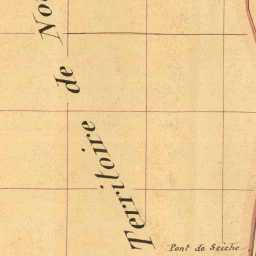 Territoire de No
Pont de Seiche